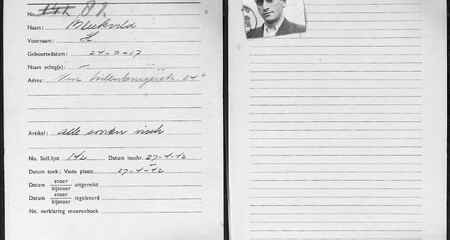 No. 141 81
Naam: Blukveld
Voornaam: H
Geboortedatum: 24-3-17
Naam echtg(e).: -
Adres:
Artikel: alle soorten visch
No. Soll.lijst 142 Datum inschr. 27-1-42
Datum zoek: Vaste plaats 27-1-42
Datum snoer/bijsnoer uitgereikt
Datum snoer/bijsnoer ingeleverd
No. verklaring snoerenboek